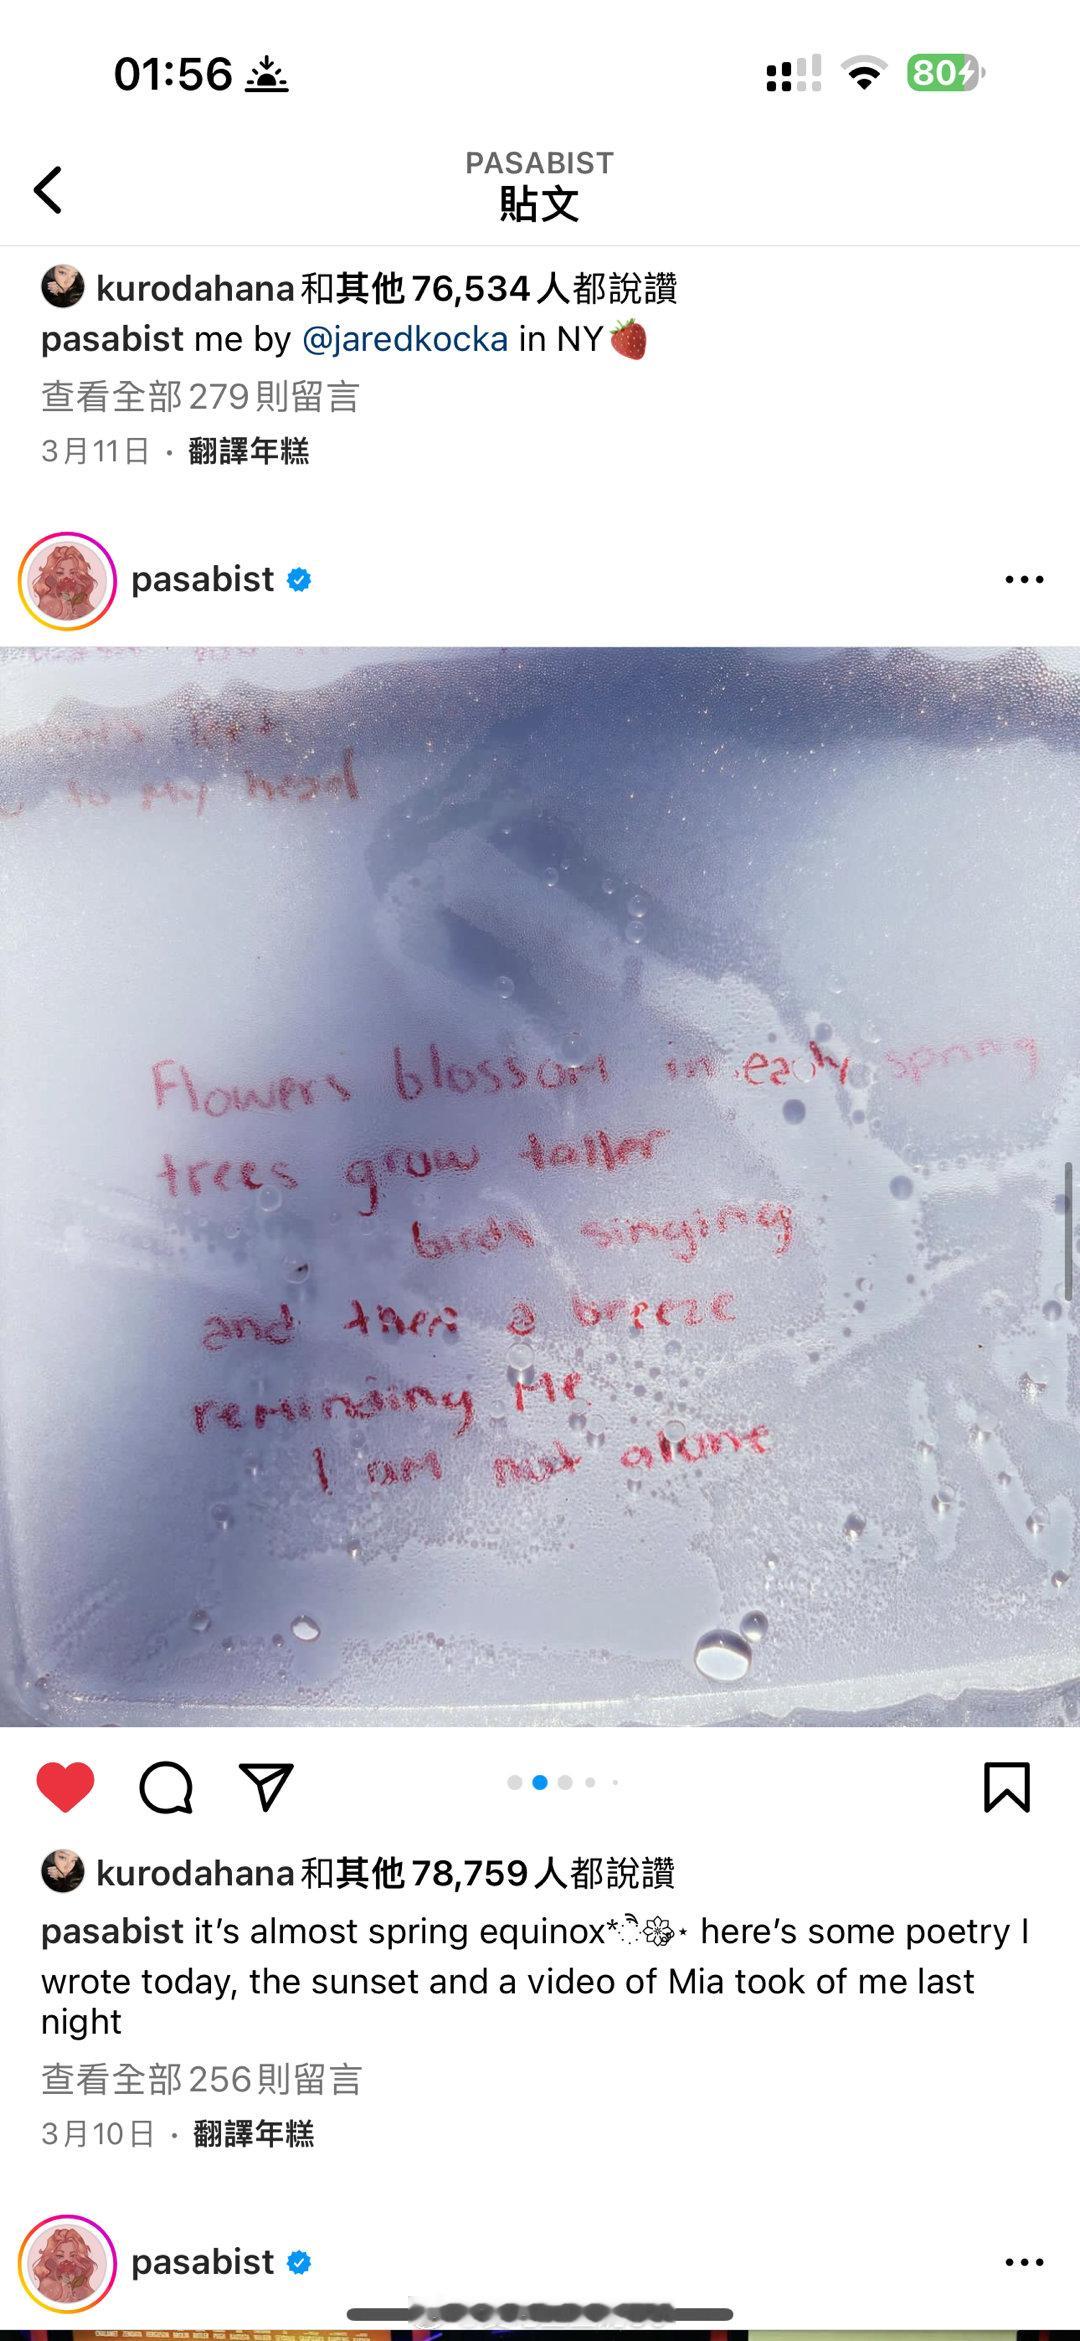 01:56
80
PASABIST
貼文
kurodahana和其他 76,534 人都說讚
pasabist me by @jaredkocka in NY🍓
查看全部 279 則留言
3月11日 · 翻譯年糕
pasabist
to my head
Flowers blossom in each spring
trees grow taller
birds singing
and then a breeze
reminding me
I am not alone
kurodahana和其他 78,759 人都說讚
pasabist it’s almost spring equinox* here’s some poetry I
wrote today, the sunset and a video of Mia took of me last
night
查看全部 256 則留言
3月10日 · 翻譯年糕
pasabist